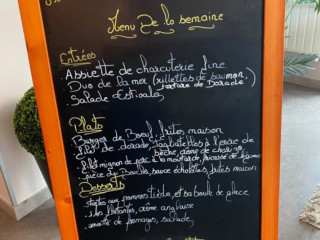 Menu De la semaine
Entrées
Assiette de charcuterie fine
Duo de la mer (rillettes de saumon,
terrine de Dorade)
Salade Estivale
Plats
Burger de Boeuf, frites maison
filet de dorade, tagliatelles à l'encre de
sèche, crème de chorizo
filet mignon de porc à la moutarde, de légumes
pièce du Boucher, sauce échalotes, frites maison
Desserts
tartes aux pommes tiède, et sa boule de glace
îles flottantes, crème anglaise
assiette de fromages, salade